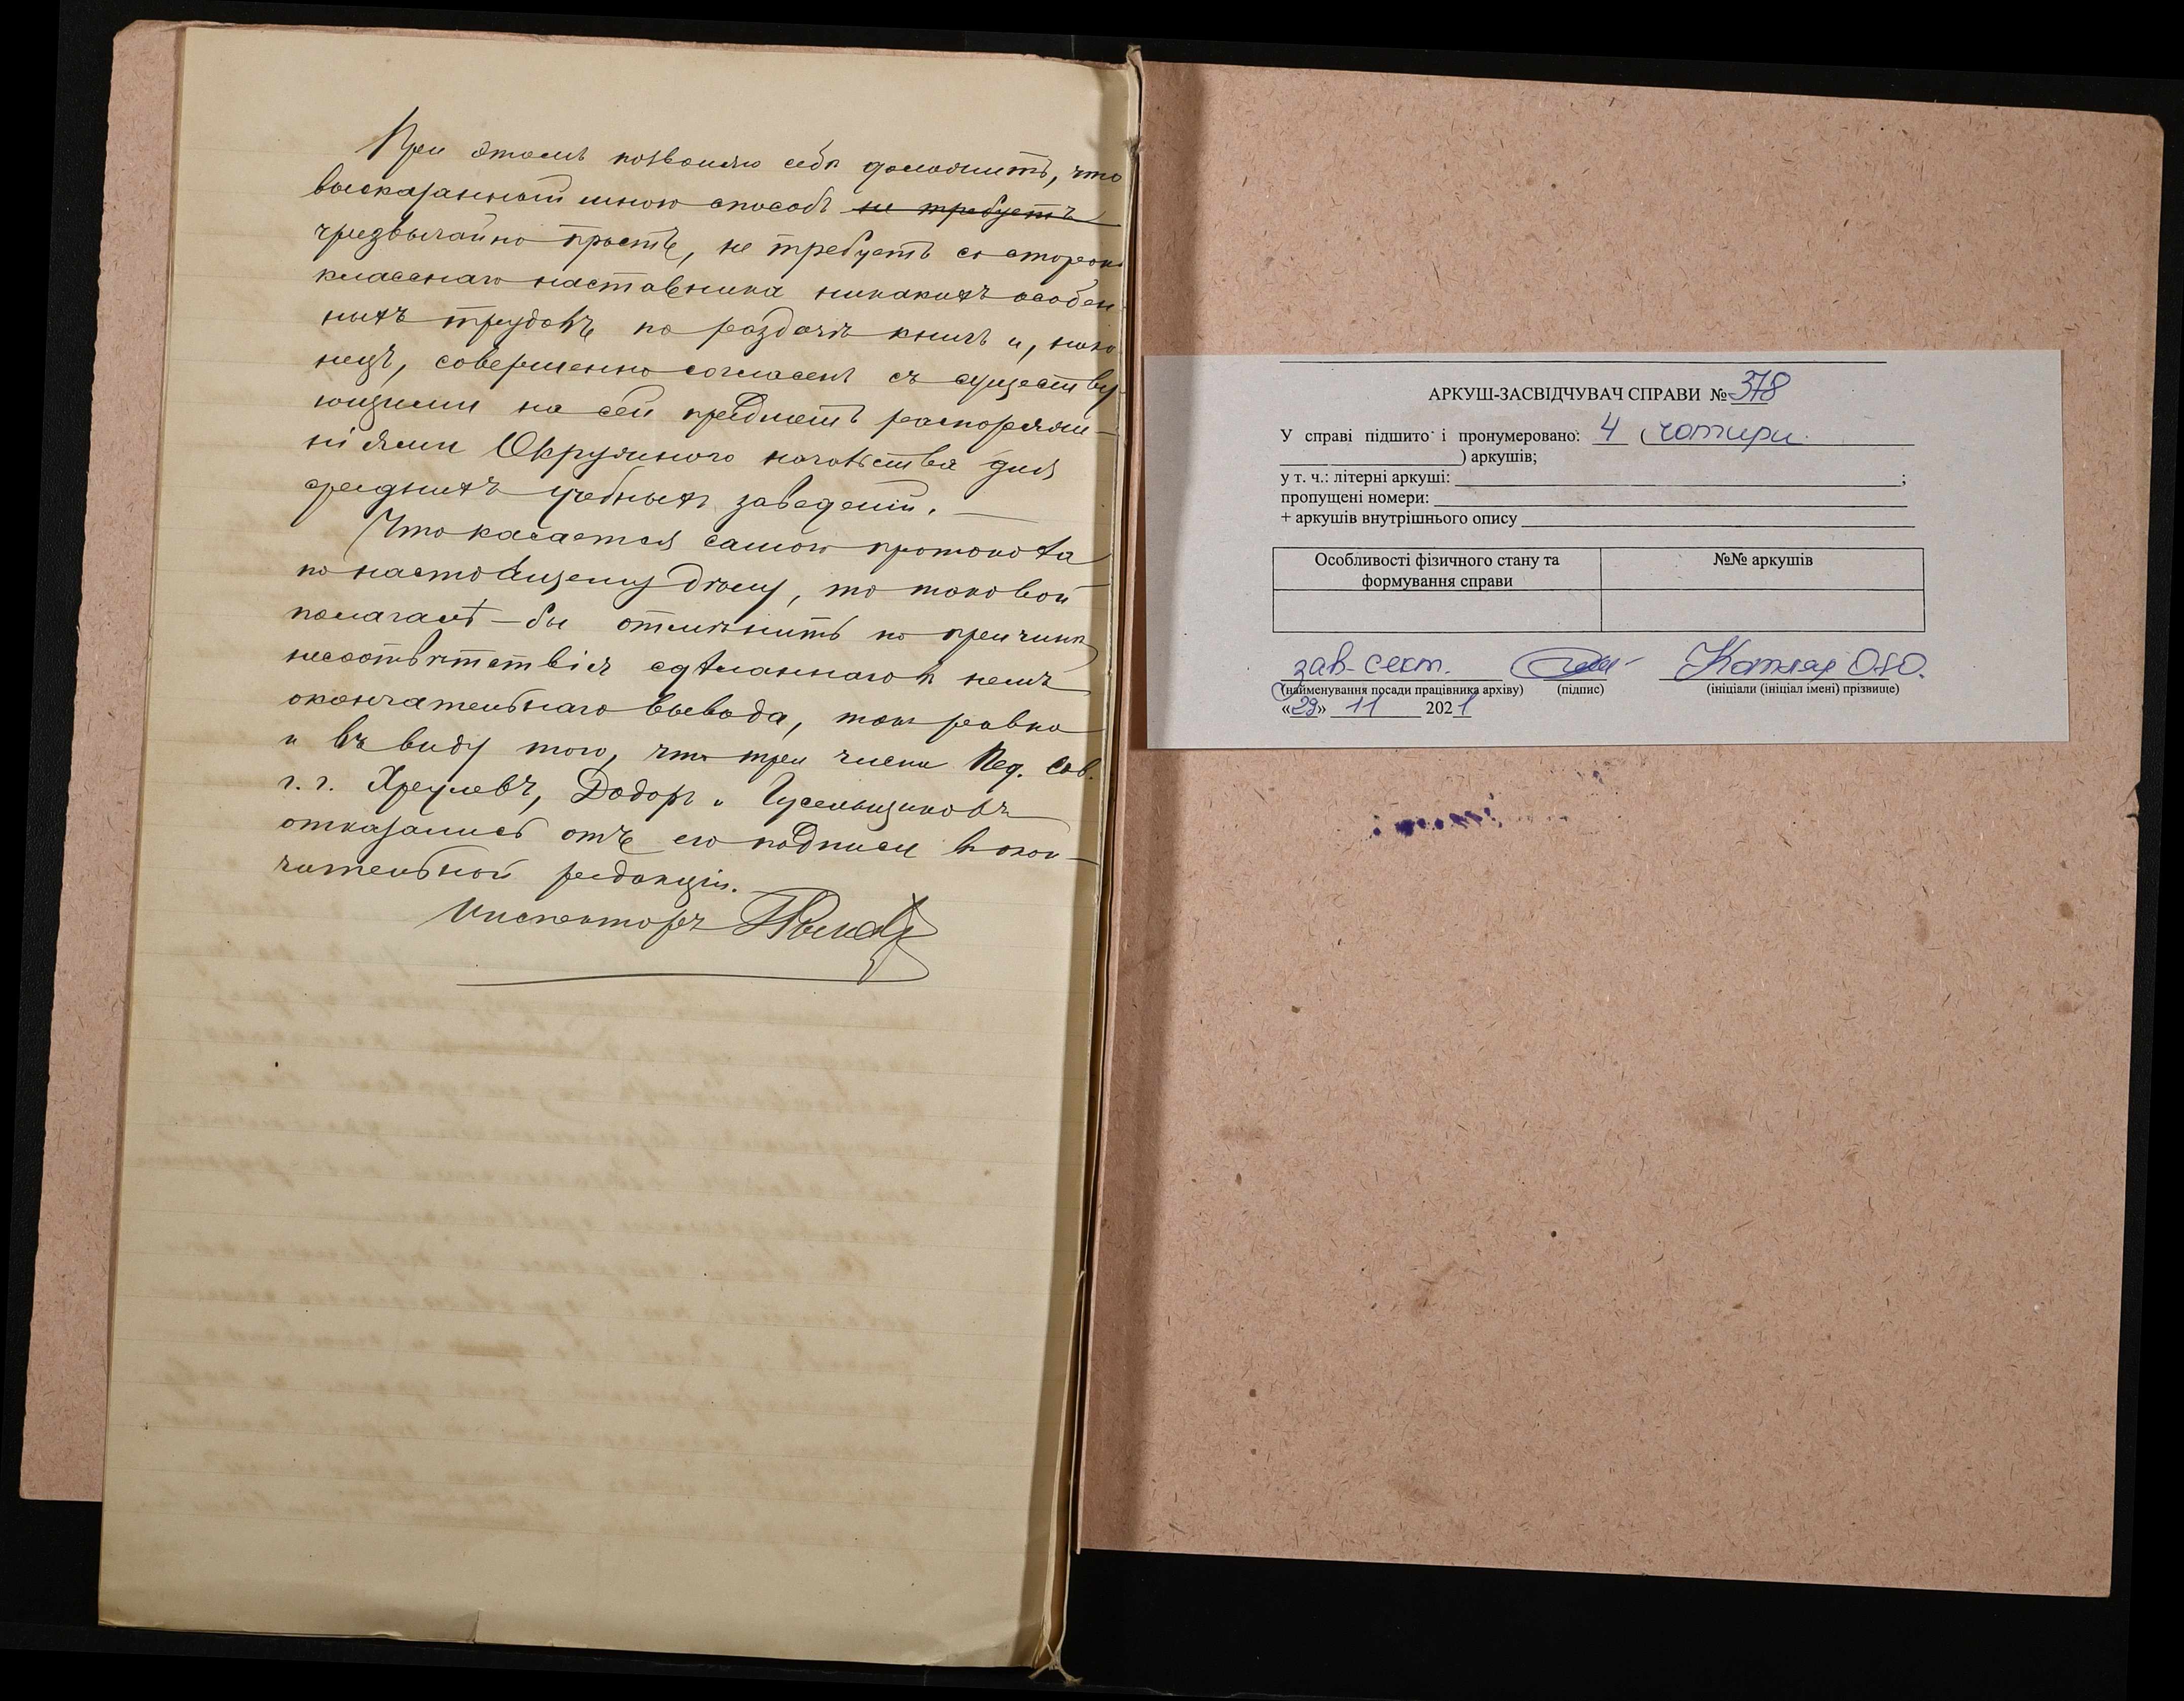 При этомъ позволяю себѣ доложить, что
высказанный мною способъ не требуетъ
чрезвычайно простъ, не требуетъ со стороны
класснаго наставника никакихъ особен
ныхъ трудовъ по раздачѣ книгъ и, нако
нецъ, совершенно согласенъ съ существу
ющими на сей предметъ распоряже-
ніями Окружного начальства для
среднихъ учебныхъ заведеній.
Что касается самого протокола
по настоящему дѣлу, то таковой
полагалъ-бы отмѣнить по причинѣ
несоотвѣтствія сдѣланнаго въ немъ
окончательнаго вывода, такъ равно
и въ виду того, что три члена Пед. Сов.
г. г. Хрулевъ, Дадоръ и Гусельщиковъ
отказались отъ его подписи въ окон-
чательной редакціи.
Инспекторъ
АРКУШ-ЗАСВІДЧУВАЧ СПРАВИ № 378
У справі підшито і пронумеровано: 4 (чотири
) аркушів;
у т. ч.: літерні аркуші: ;
пропущені номери:
+ аркушів внутрішнього опису
Особливості фізичного стану та формування справи №№ аркушів
зав. сект. Котляр О.Ю.
(найменування посади працівника архіву) (підпис) (ініціали (ініціал імені) прізвище)
«29» 11 2021